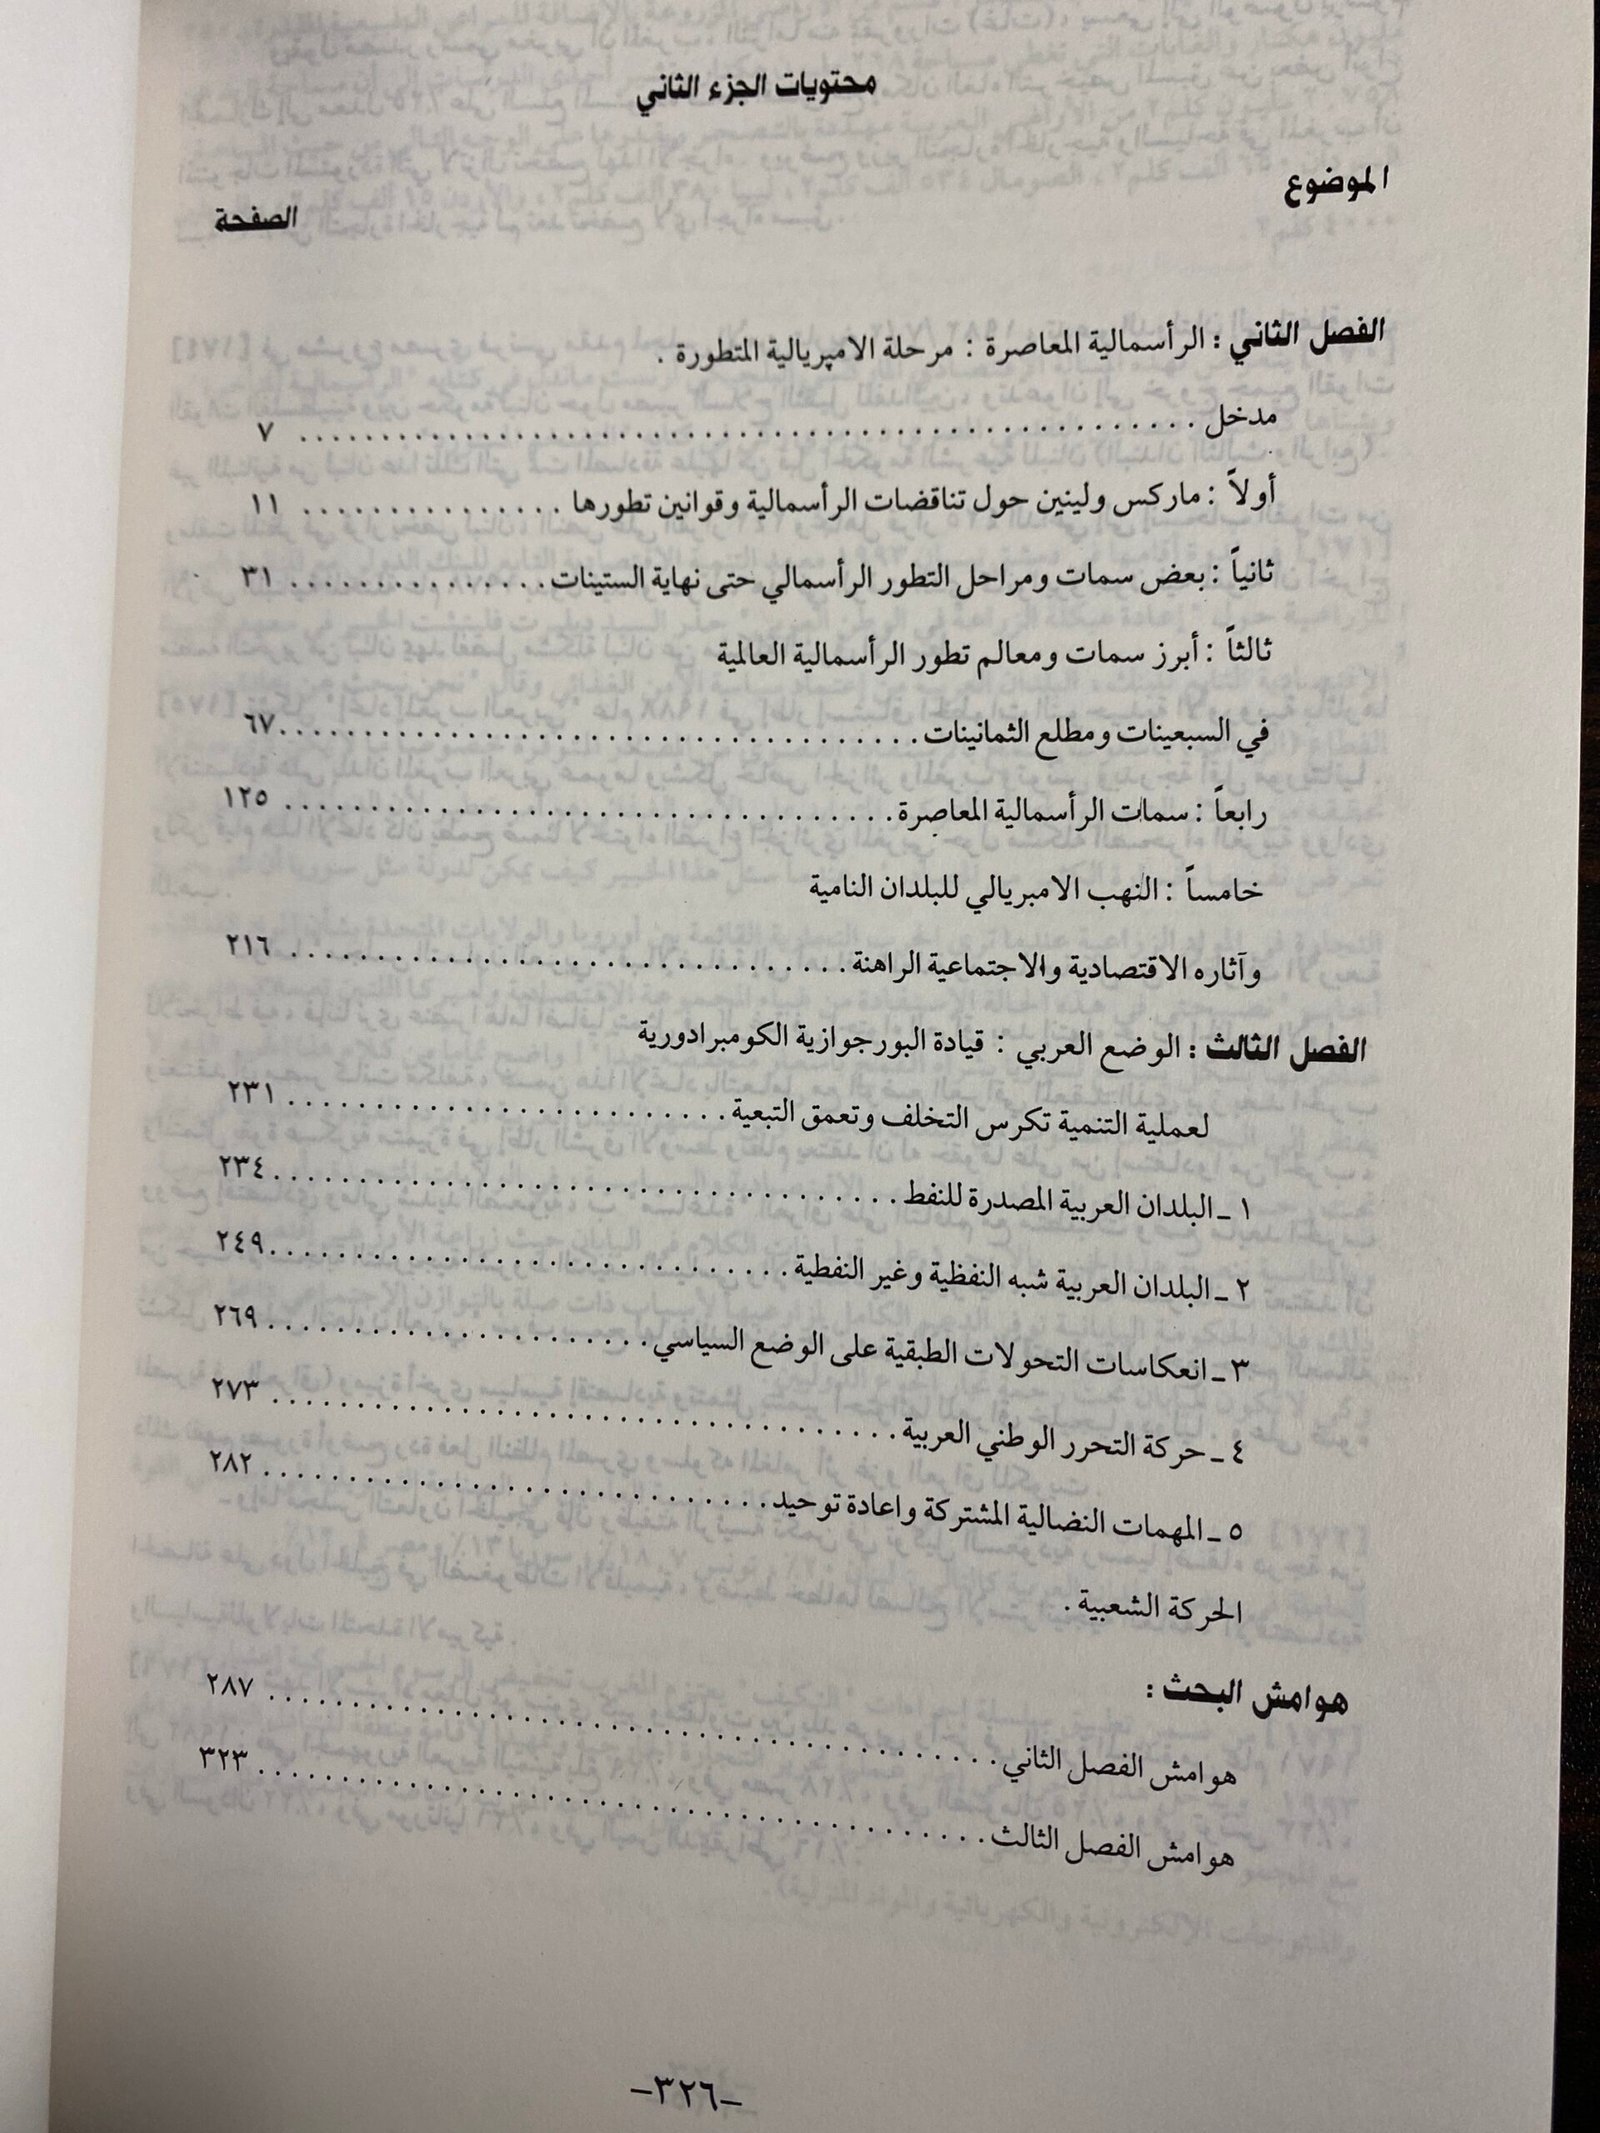 محتويات الجزء الثاني
الموضوع
الصفحة
الفصل الثاني : الرأسمالية المعاصرة : مرحلة الامپريالية المتطورة .
مدخل . . . . . . . . . . . . . . . . . . . . ٧
أولاً : ماركس ولينين حول تناقضات الرأسمالية وقوانين تطورها . . . . . . . . . . . . . . ١١
ثانياً : بعض سمات ومراحل التطور الرأسمالي حتى نهاية الستينات . . . . . . . . . . . . . . ٣١
ثالثاً : أبرز سمات ومعالم تطور الرأسمالية العالمية
في السبعينات ومطلع الثمانينات . . . . . . . . . . . . . . . . . . . . ٦٧
رابعاً : سمات الرأسمالية المعاصرة . . . . . . . . . . . . . . . . . . . . ١٢٥
خامساً : النهب الامبريالي للبلدان النامية
وآثاره الاقتصادية والاجتماعية الراهنة . . . . . . . . . . . . . . . . . . . . ٢١٦
الفصل الثالث : الوضع العربي : قيادة البورجوازية الكومبرادورية
لعملية التنمية تكرس التخلف وتعمق التبعية . . . . . . . . . . . . . . . . . . . . ٢٣١
١ ـ البلدان العربية المصدرة للنفط . . . . . . . . . . . . . . . . . . . . ٢٣٤
٢ ـ البلدان العربية شبه النفظية وغير النفطية . . . . . . . . . . . . . . . . . . . . ٢٤٩
٣ ـ انعكاسات التحولات الطبقية على الوضع السياسي . . . . . . . . . . . . . . . . . . . . ٢٦٩
٤ ـ حركة التحرر الوطني العربية . . . . . . . . . . . . . . . . . . . . ٢٧٣
٥ ـ المهمات النضالية المشتركة واعادة توحيد . . . . . . . . . . . . . . . . . . . . ٢٨٢
الحركة الشعبية .
هوامش البحث :
هوامش الفصل الثاني . . . . . . . . . . . . . . . . . . . . ٢٨٧
هوامش الفصل الثالث . . . . . . . . . . . . . . . . . . . . ٣٢٣
–٣٢٦–